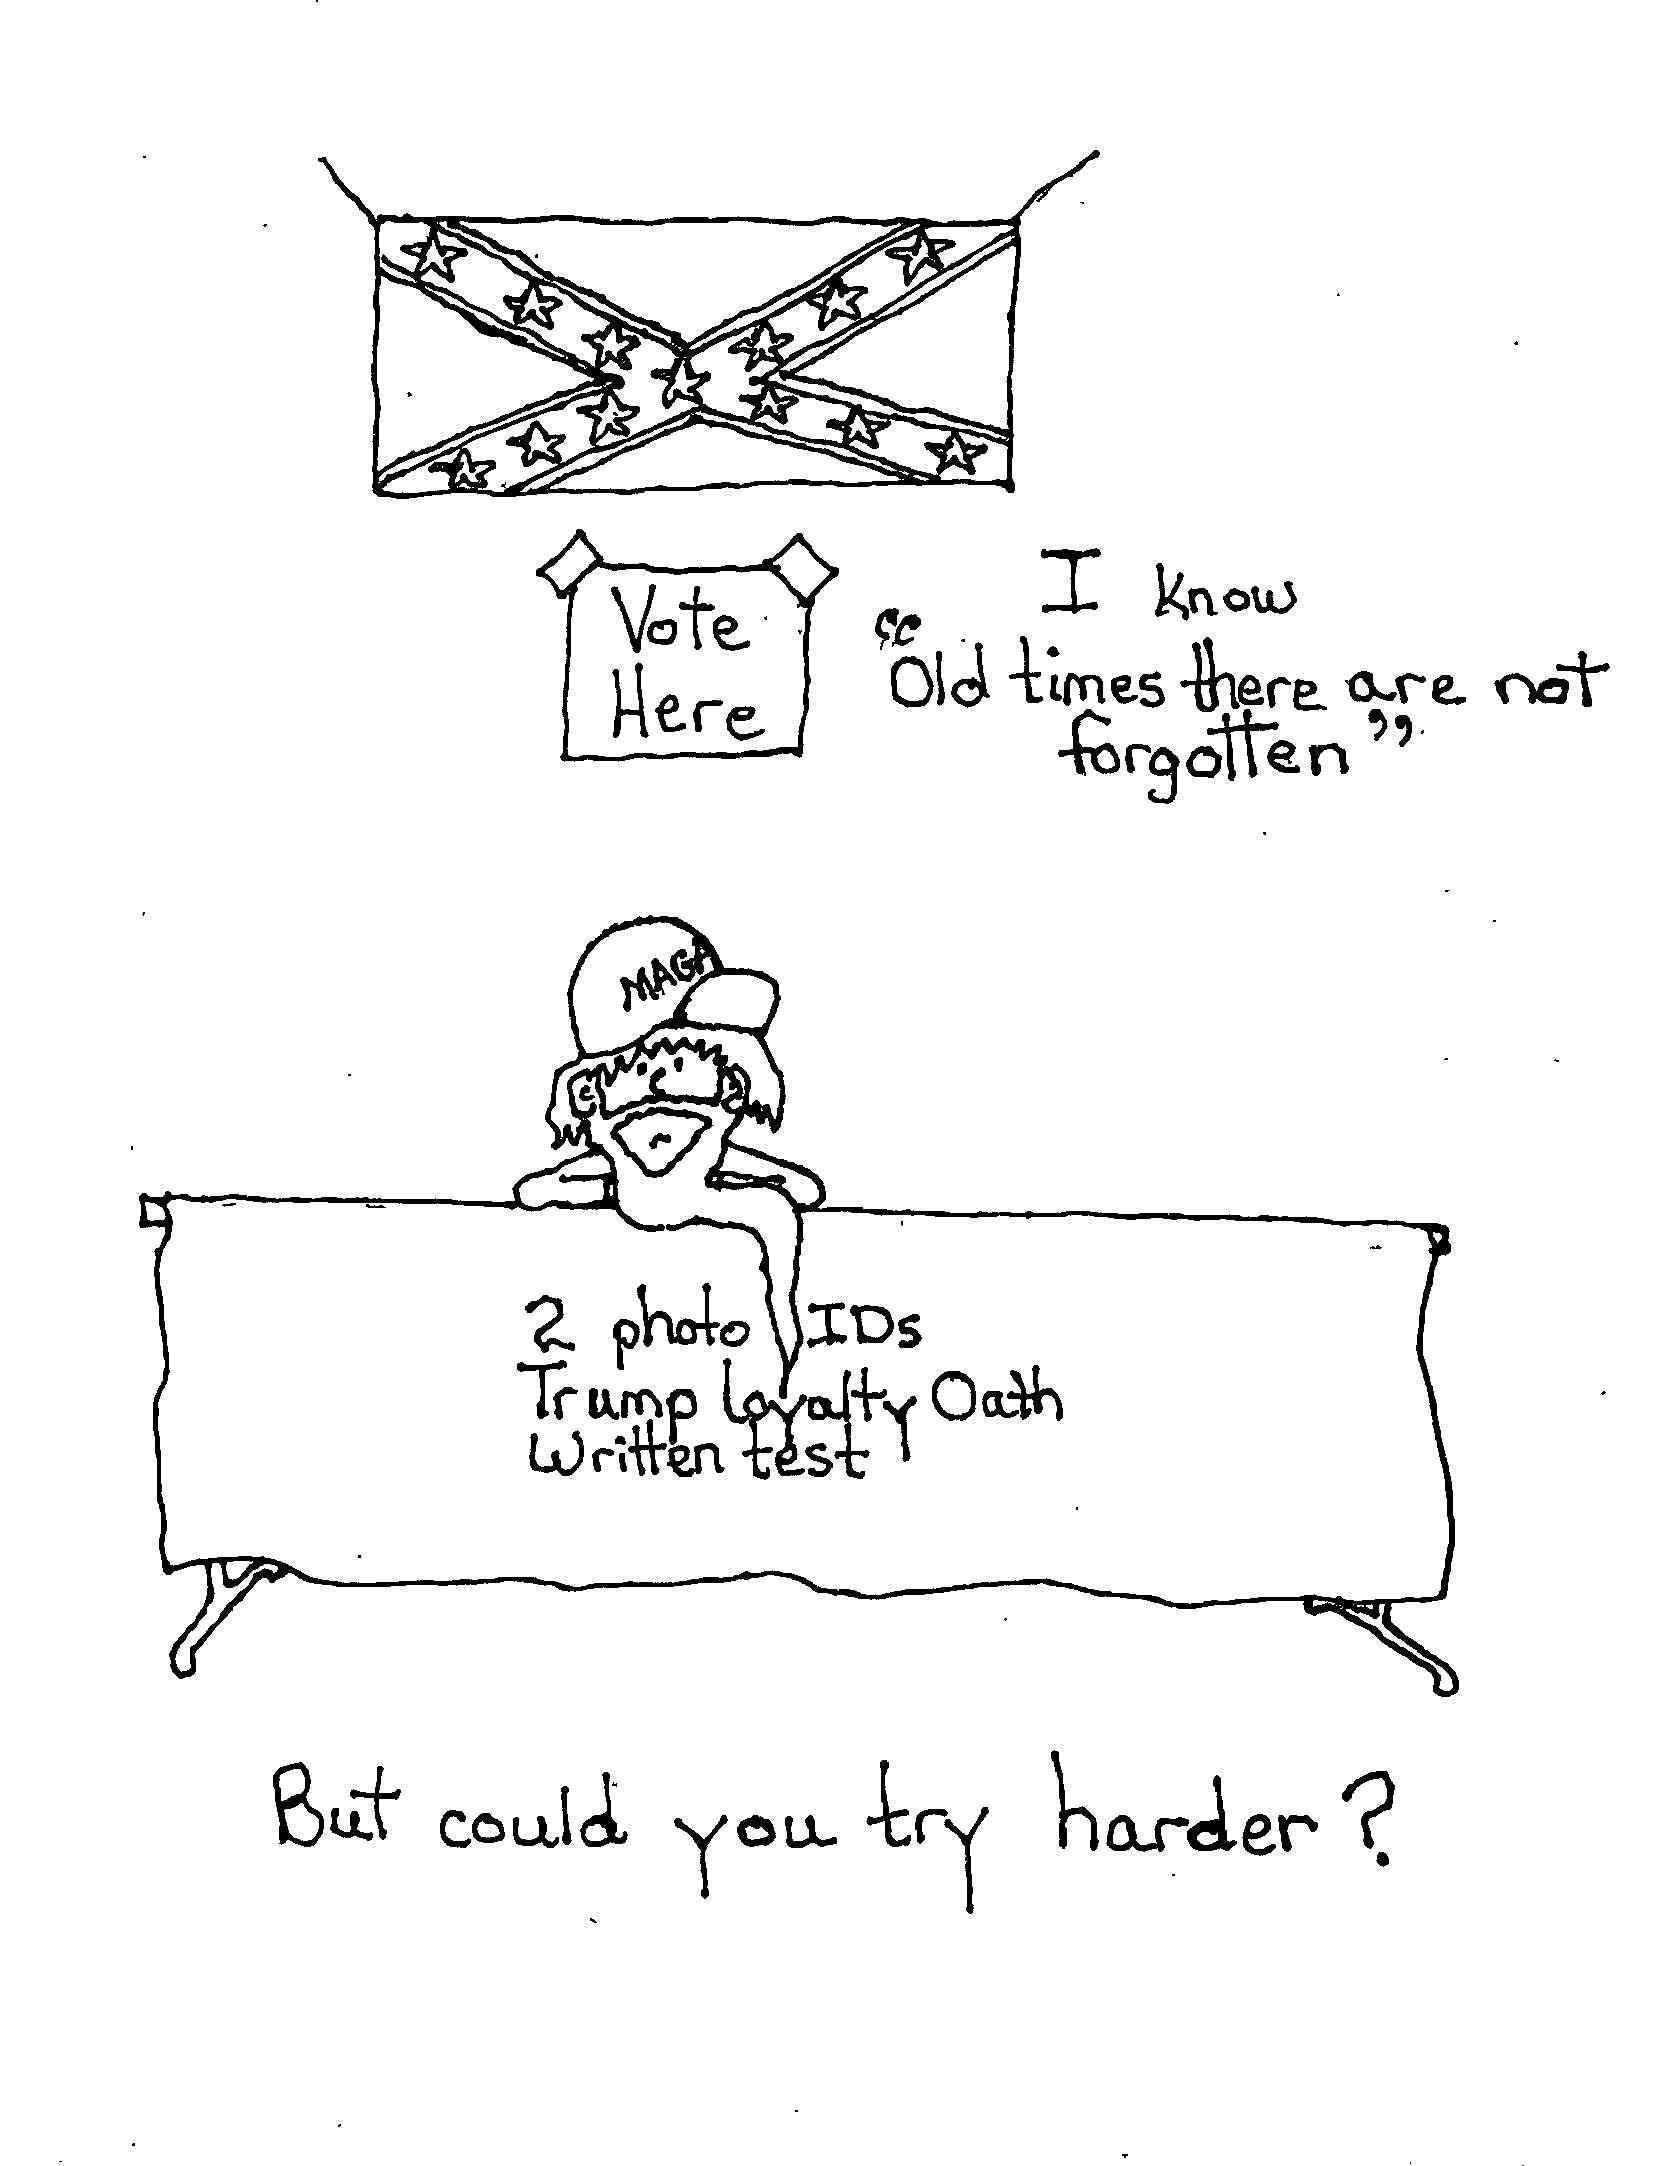 Vote
Here
I know
"Old times there are not
forgotten"
MAGA
2 photo IDs
Trump loyalty Oath
Written test
But could you try harder?